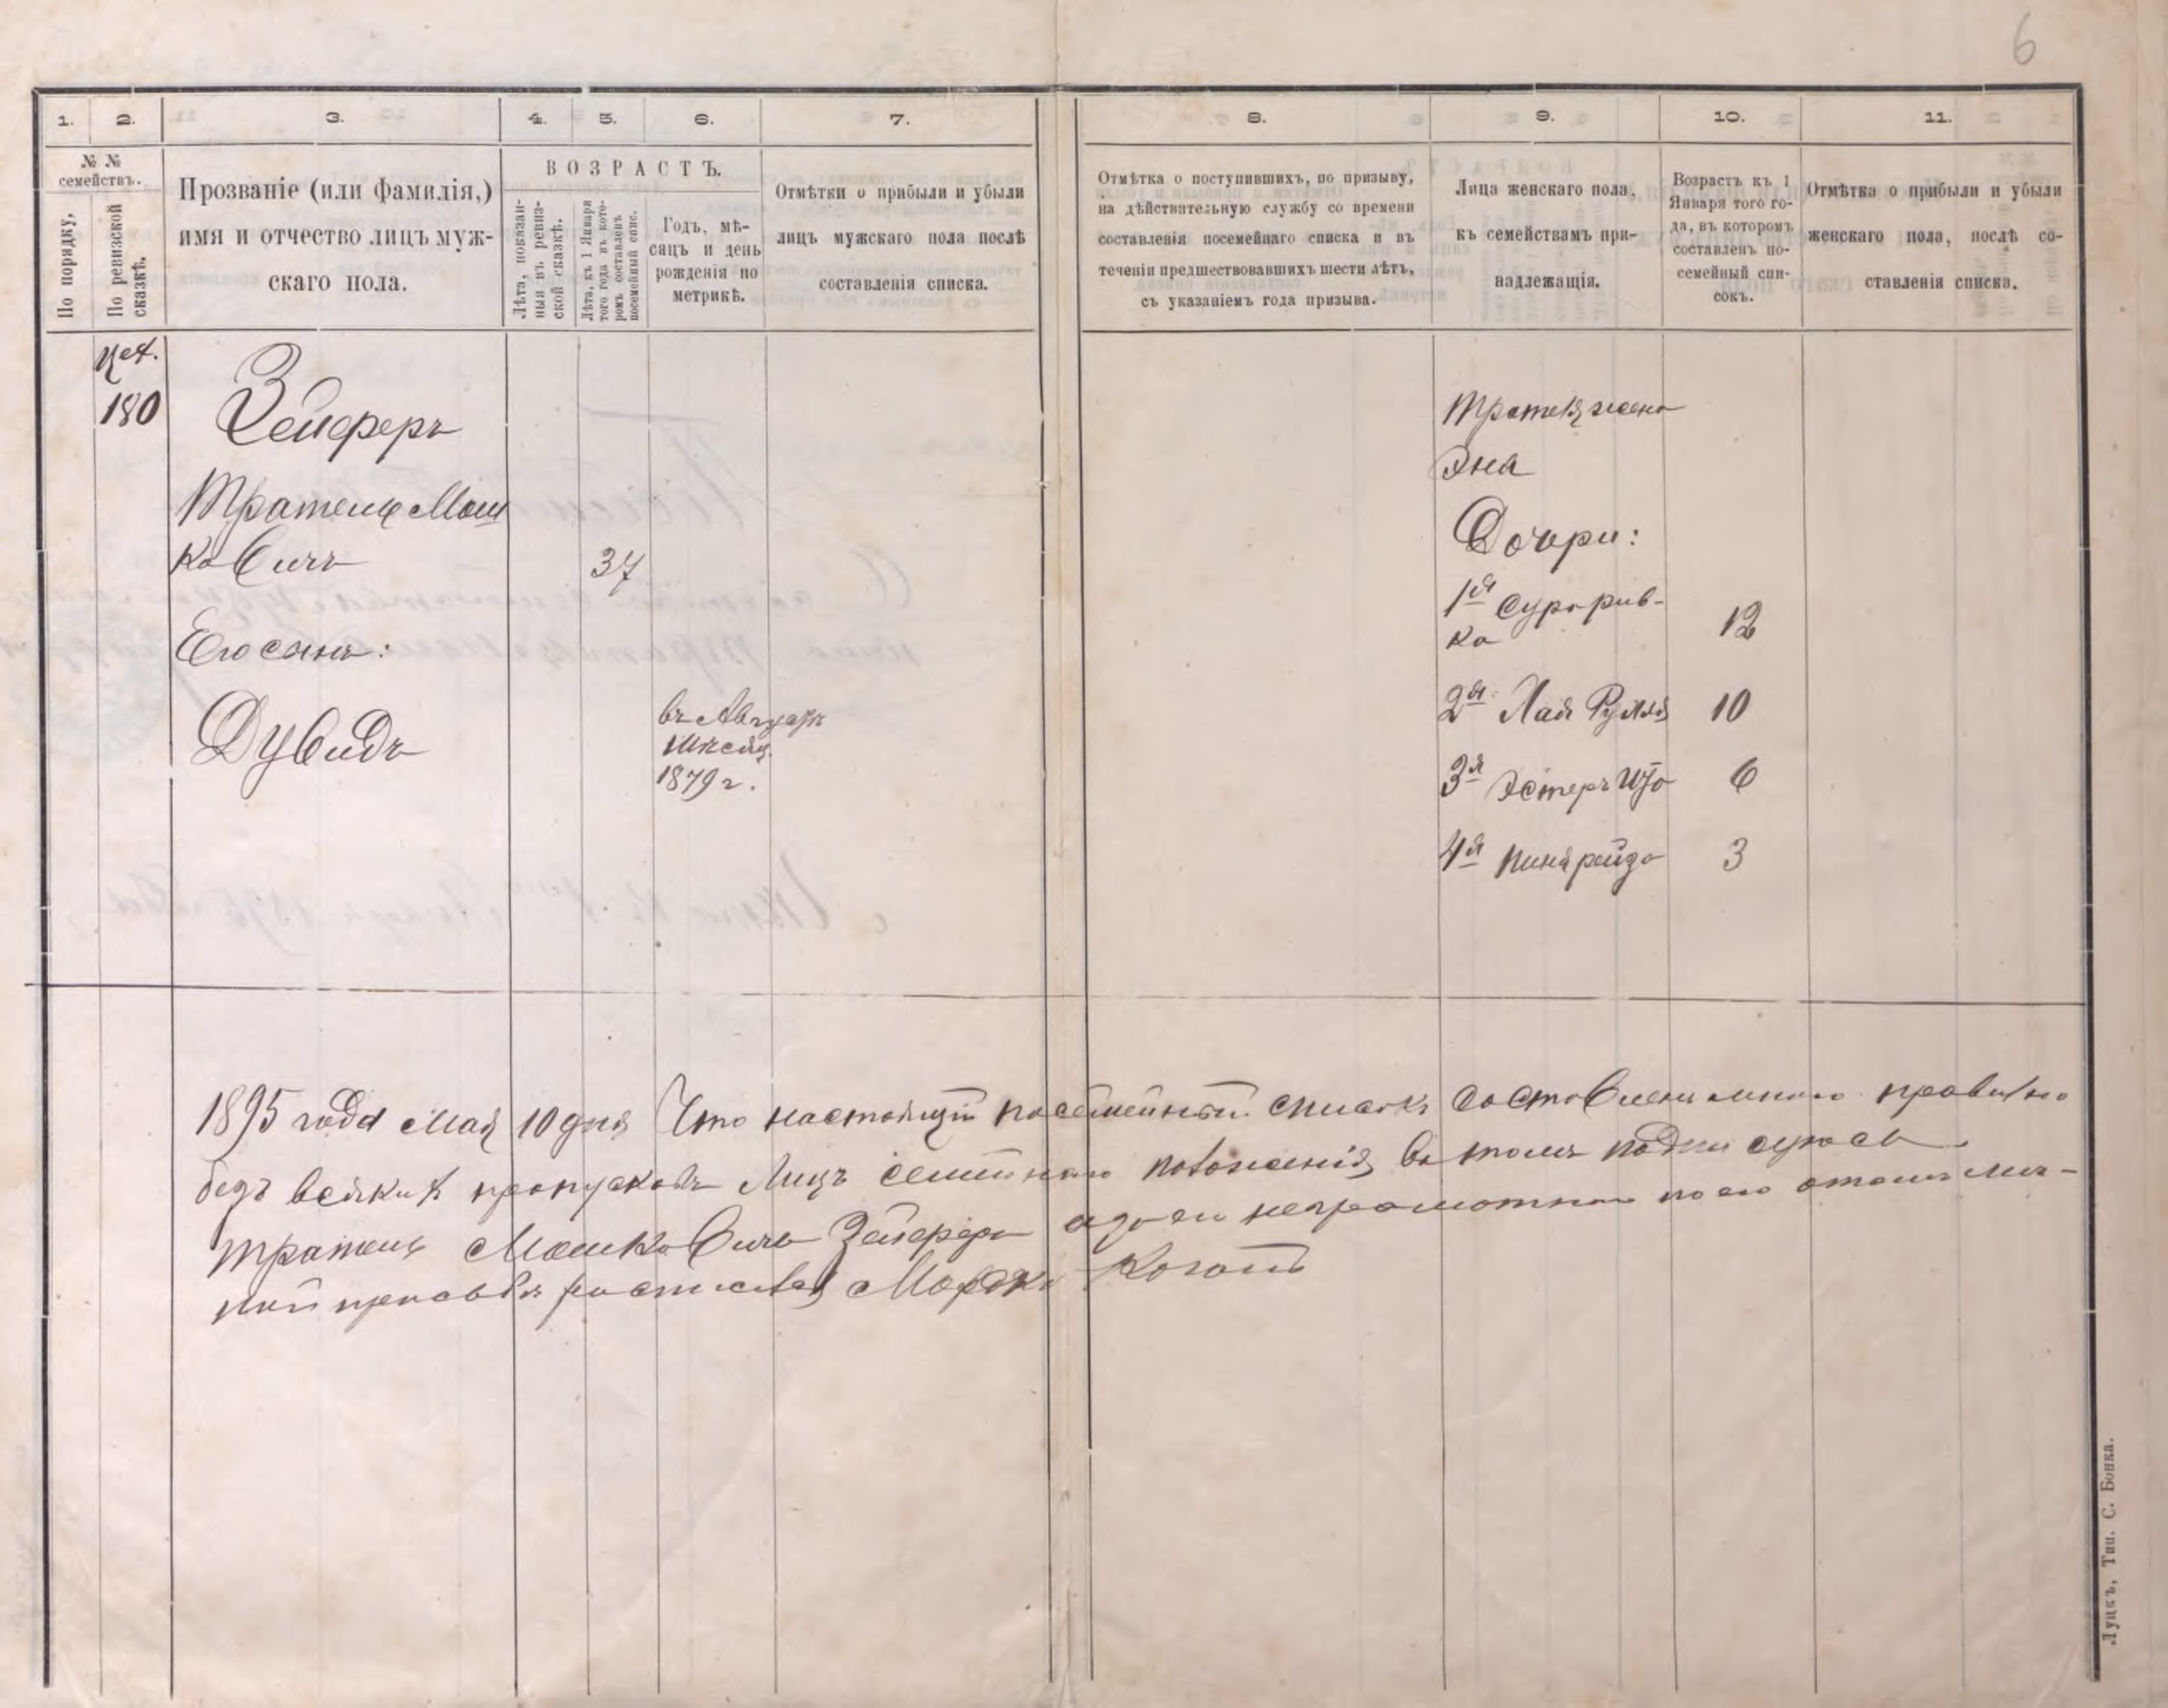 6
1. 2. 3. 4. 5. 6. 7. 8. 9. 10. 11.
№ №
семействъ.
По порядку,
По ревизской
сказкѣ.
Прозваніе (или фамилія,)
имя и отчество лицъ муж-
скаго пола.
ВОЗРАСТЪ.
Лѣта, показан-
ныя въ ревиз-
ской сказкѣ.
Лѣта, къ 1 Января
того года въ кото-
ромъ составленъ
посемейный спис.
Годъ, мѣ-
сяцъ и день
рожденія по
метрикѣ.
Отмѣтки о прибыли и убыли
лицъ мужскаго пола послѣ
составленія списка.
Отмѣтка о поступившихъ, по призыву,
на дѣйствительную службу со времени
составленія посемейнаго списка и въ
теченіи предшествовавшихъ шести лѣтъ,
съ указаніемъ года призыва.
Лица женскаго пола,
къ семействамъ при-
надлежащія.
Возрастъ къ 1
Января того го-
да, въ которомъ
составленъ по-
семейный спи-
сокъ.
Отмѣтка о прибыли и убыли
женскаго пола, послѣ со-
ставленія списка.
180
Зейферъ
Тратель Мош
ковичъ 37
Его сынъ:
Дувидъ
въ
мѣсяц.
1879 г.
жена
Эна
Дочери:
1я Сурорив-
ка 12
2я Хая 10
3я Эстеръ 6
4я 3
1895 года Мая 10 дня Что настоящій посемейный списокъ составленъ мною правильно
безъ всякихъ пропусковъ лицъ семейнаго положенія въ томъ подписуюсь
Мошковичъ Зейферъ а за его неграмотнаго по его
росписался Мордко Коган
Луцкъ, Тип. С. Бонка.